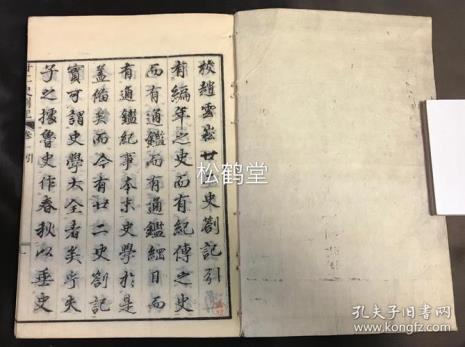 校趙雲崧廿二史劄記引
有編年之史而有紀傳之史
而有通鑑而有通鑑綱目而
有通鑑紀事本末史學於是
蓋備矣而今有廿二史劄記
實可謂史學大全者矣乎夫
子之據魯史作春秋以垂史
廿二史劄記 卷一 引
松鹤堂
孔夫子旧书网
www.kongfz.com